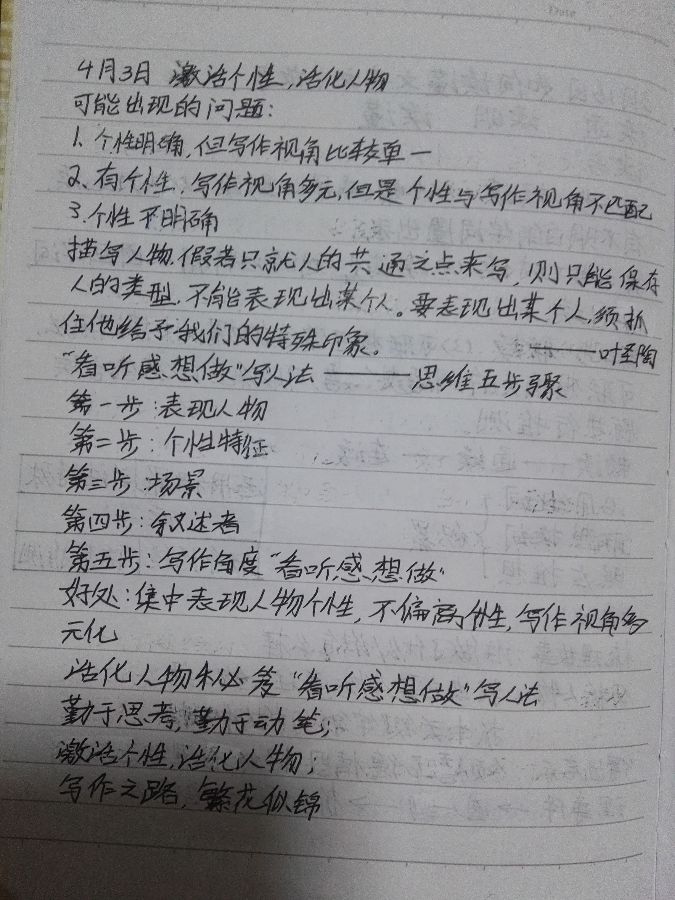 4月3日 激活个性,活化人物
可能出现的问题:
1、个性明确,但写作视角比较单一
2、有个性,写作视角多元,但是个性与写作视角不匹配
3.个性不明确
描写人物,假若只就人的共通之点来写,则只能保存
人的类型,不能表现出某个人。要表现出某个人,须抓
住他给予我们的特殊印象。 ——叶至陶
"看听感想做"写人法 —— 思维五步骤
第一步:表现人物
第二步:个性特征
第三步:场景
第四步:叙述者
第五步:写作角度"看听感想做"
好处:集中表现人物个性,不偏离个性,写作视角多
元化
活化人物秘笈"看听感想做"写人法
勤于思考,勤于动笔;
激活个性,活化人物;
写作之路,繁花似锦